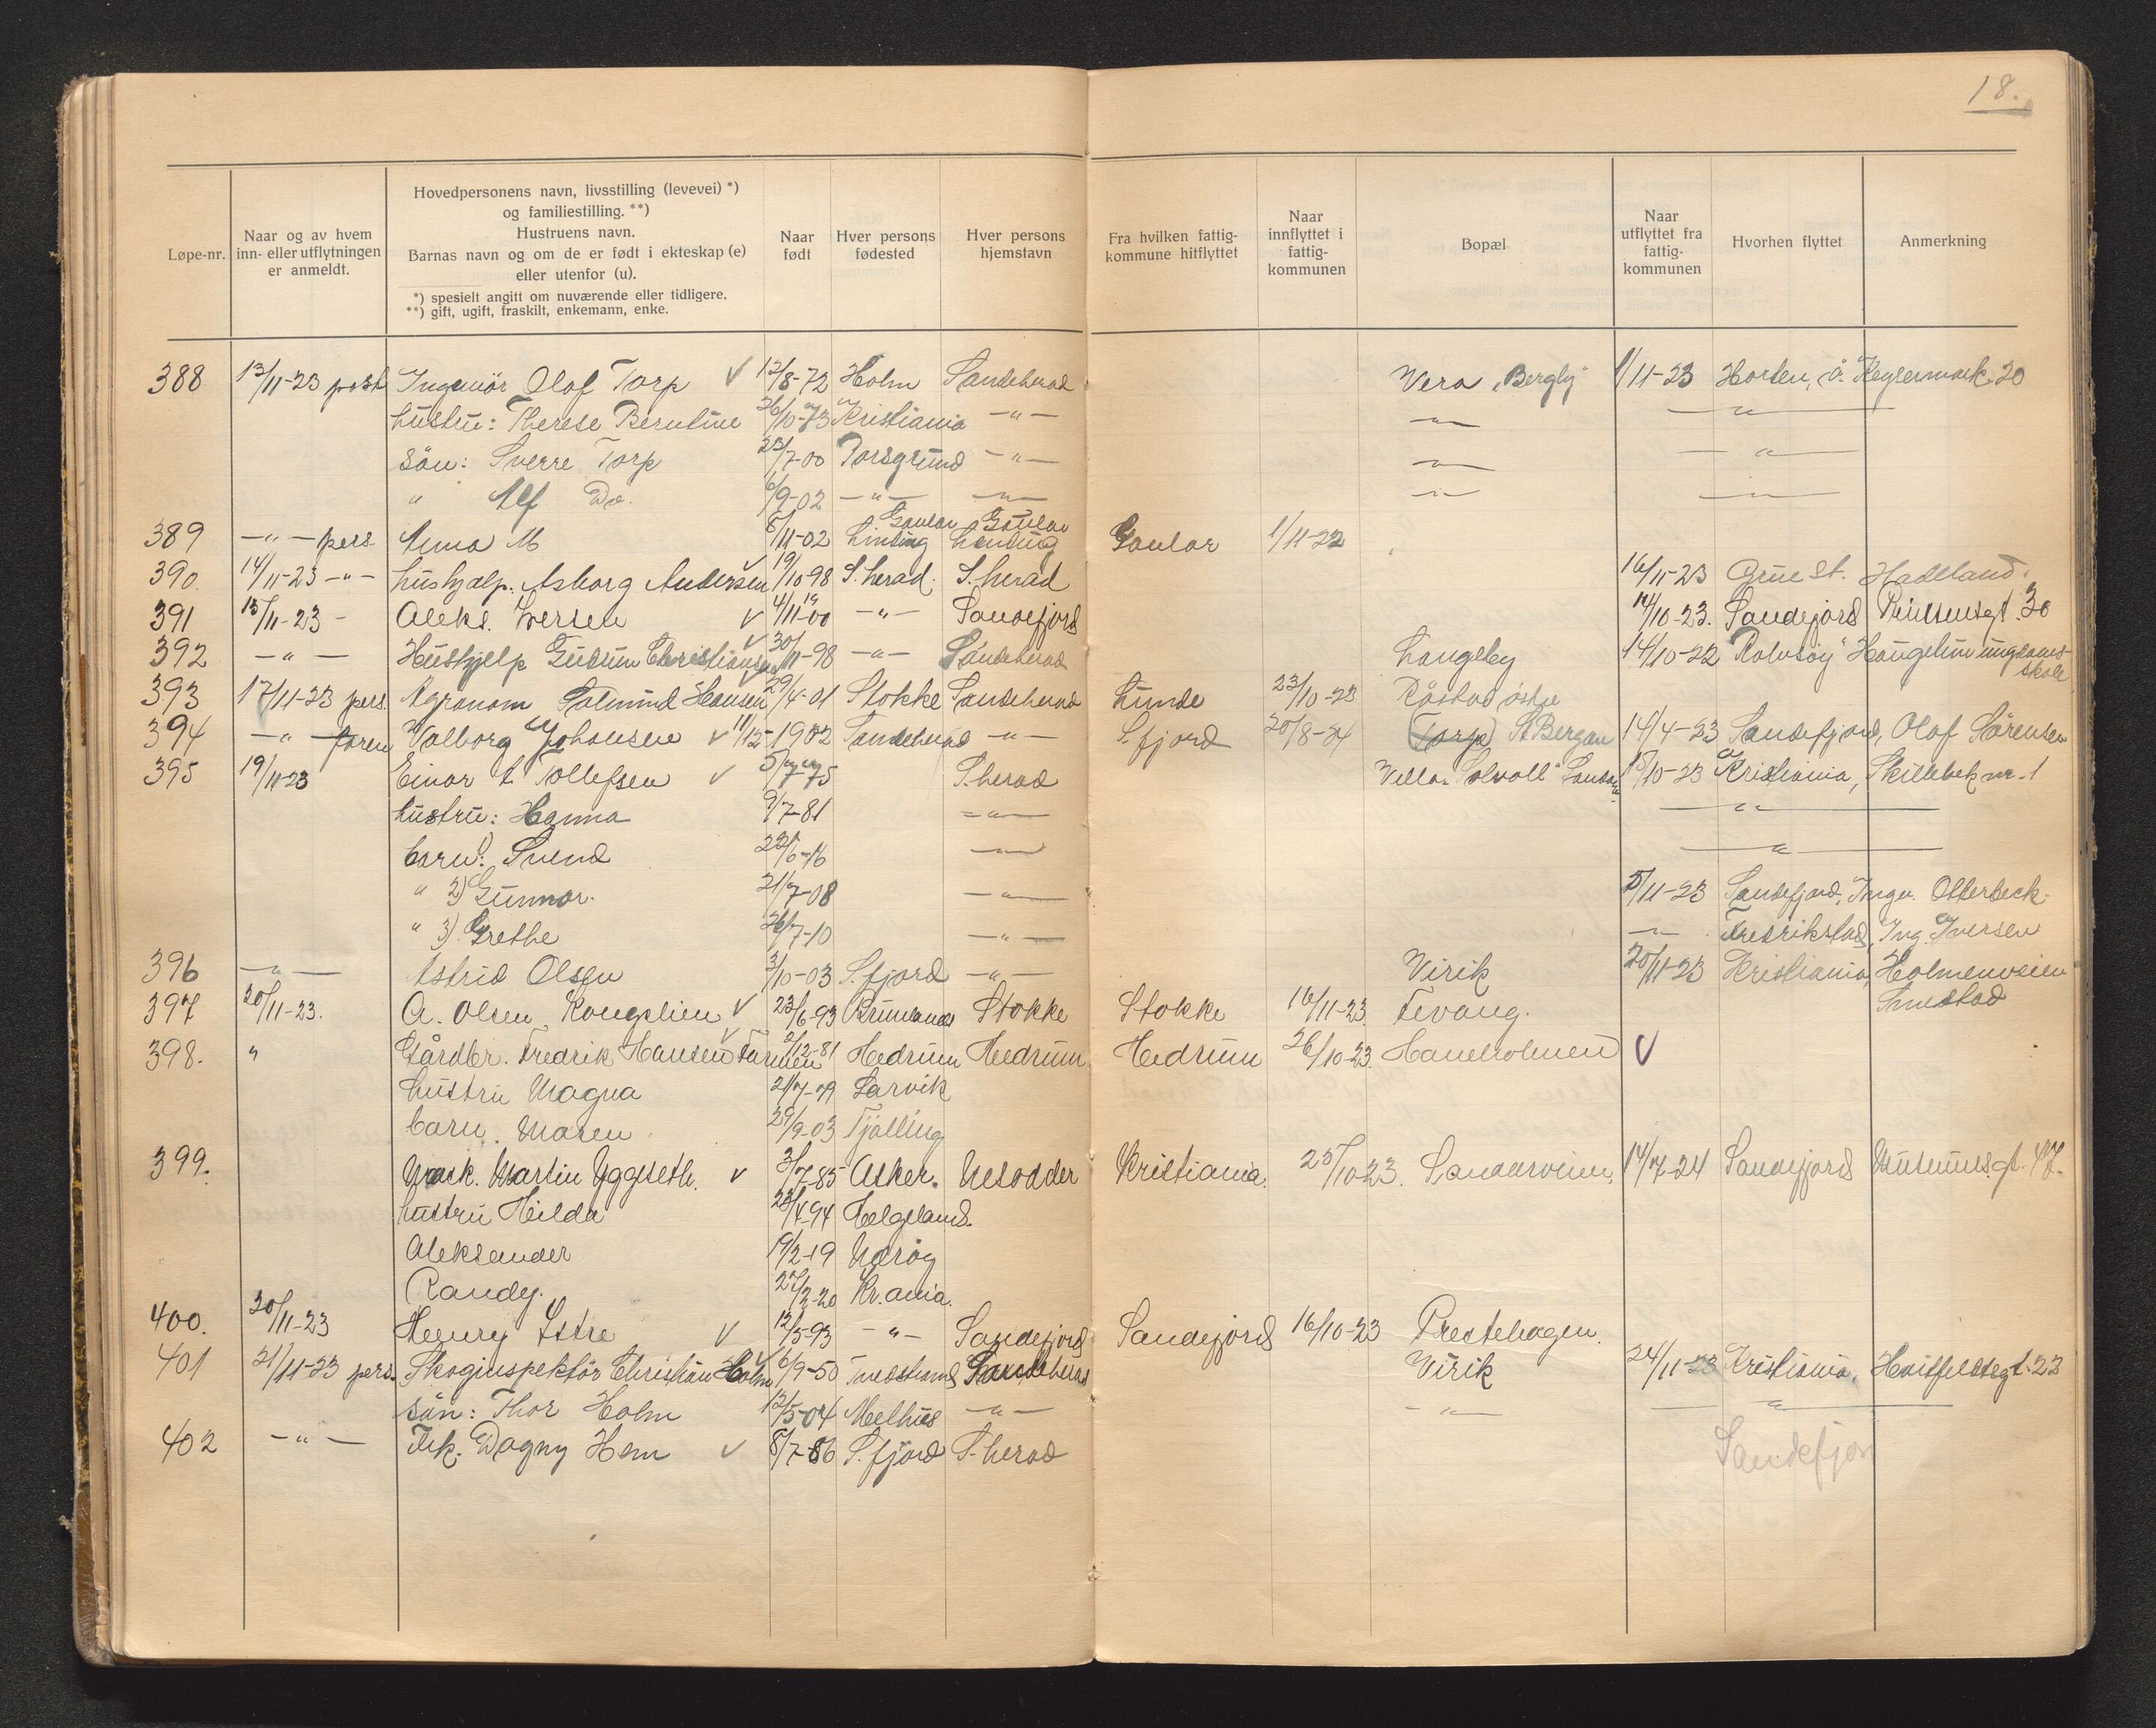 18.
Løpe-nr.
Naar og av hvem
inn- eller utflytningen
er anmeldt.
Hovedpersonens navn, livsstilling (levevei) *)
og familiestilling. **)
Hustruens navn.
Barnas navn og om de er født i ekteskap (e)
eller utenfor (u).
*) spesielt angitt om nuværende eller tidligere.
**) gift, ugift, fraskilt, enkemann, enke.
Naar
født
Hver persons
fødested
Hver persons
hjemstavn
Fra hvilken fattig-
kommune hitflyttet
Naar
innflyttet i
fattig-
kommunen
Bopæl
Naar
utflyttet fra
fattig-
kommunen
Hvorhen flyttet
Anmerkning
388 13/11-23 post Ingeniör Olaf Torp √ 12/8-72 Holm Sandeherad Vera „Bergly" 1/11-23 Horten, Keysermark 20
hustru: Therese Berntine 26/10-73 Kristiania -"- -"- -"-
sön: Sverre Torp 23/7-00 Porsgrund -"- -"- -"-
" Alf Do. 6/9-02 -"- -"- -"- -"-
389 -"- pers Anna M 8/11-02 Gaular Gaular Gaular 1/11-22
390. 14/11-23 -"- hushjælp. Asborg Andersen √ 19/10-98 S.herad. S.herad 16/11-23 Grue St. Hadeland.
391 15/11-23 - Aleks. Iversen √ 4/11-00 -"- Sandefjord 14/10-23. Sandefjord 30
392 -"- Hushjelp Gudrun Christiansen √ 30/11-98 -"- Sandeherad Langeby 14/10-22 Rolvsöy Haugetun ungdoms-
skole
393 17/11-23 pers. Agronom Salmund Hansen 29/4-01 Stokke Sandeherad Lunde 23/10-23 Råstad östre
394 -"- foren Valborg Johansen √ 11/12-1902 Sandeherad -"- S.fjord 20/8-24 (Torp) St Bergan 14/4-23 Sandefjord, Olaf Sörensen
395 19/11-23 Einar L Tollefsen √ 5/7-75 S.herad Villa „Solvoll" 15/10-23 Kristiania, Skillebek nr. 1
hustru: Hanna 9/7-81 -"- -"-
barn: 1) Svend 22/6-16 -"- -"-
" 2) Gunnar. 21/7-08 -"- 5/11-23 Sandefjord, Ingen. Otterbeck
" 3). Grethe 26/7-10 -"- -"- Fredrikstad, Ing. Iversen
396 -"- Astrid Olsen 3/10-03 S.fjord -"- Virik 20/11-23 Kristiania, Holmenveien
Smestad
397 20/11-23. A. Olsen Kongelien √ 23/6-93 Brunlanes Stokke Stokke 16/11-23 Tevang.
398. " Gårdbr. Fredrik Hansen Farmen √ 2/12-81 Hedrum Hedrum Hedrum 26/10-23. Haneholmen √
hustru Magna 21/7-79 Larvik
barn. Maren 29/9-03 Tjölling
399. Mask. Martin Yggseth. √ 3/7-85 Asker. Nesodder Kristiania. 25/10-23. Sandarveien 14/7-24 Sandefjord Museumsgt. 47.
hustru Hilda 28/4-94 Helgeland.
Aleksander 19/2-19 Näröy
Randy. 27/2-20 Kr.ania.
400. 20/11-23 Henry Istre √ 12/5-93 -"- Sandefjord Sandefjord 16/10-23 Prestehagen.
401 21/11-23 pers. Skoginspektör Christian Holm √ 6/9-50 Tvedestrand Sandeherad Virik 24/11-23 Kristiania, Huitfeldtsgt. 23
sön: Thor Holm 12/5-04 Melhus -"- -"- -"-
402 -"- Frk. Dagny Hem √ 8/7-86 S.fjord S.herad Sandefjor